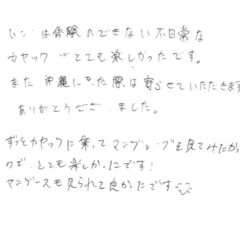 では体験のできない不日常な
カヤックがとても楽しかったです。
また沖縄に来た際は寄させていただきます
ありがとうござ ました。
ずっとカヤックに乗ってマングローブを見てみたかっ
ので、とても楽しかったです!
マングースも見られて良かたです